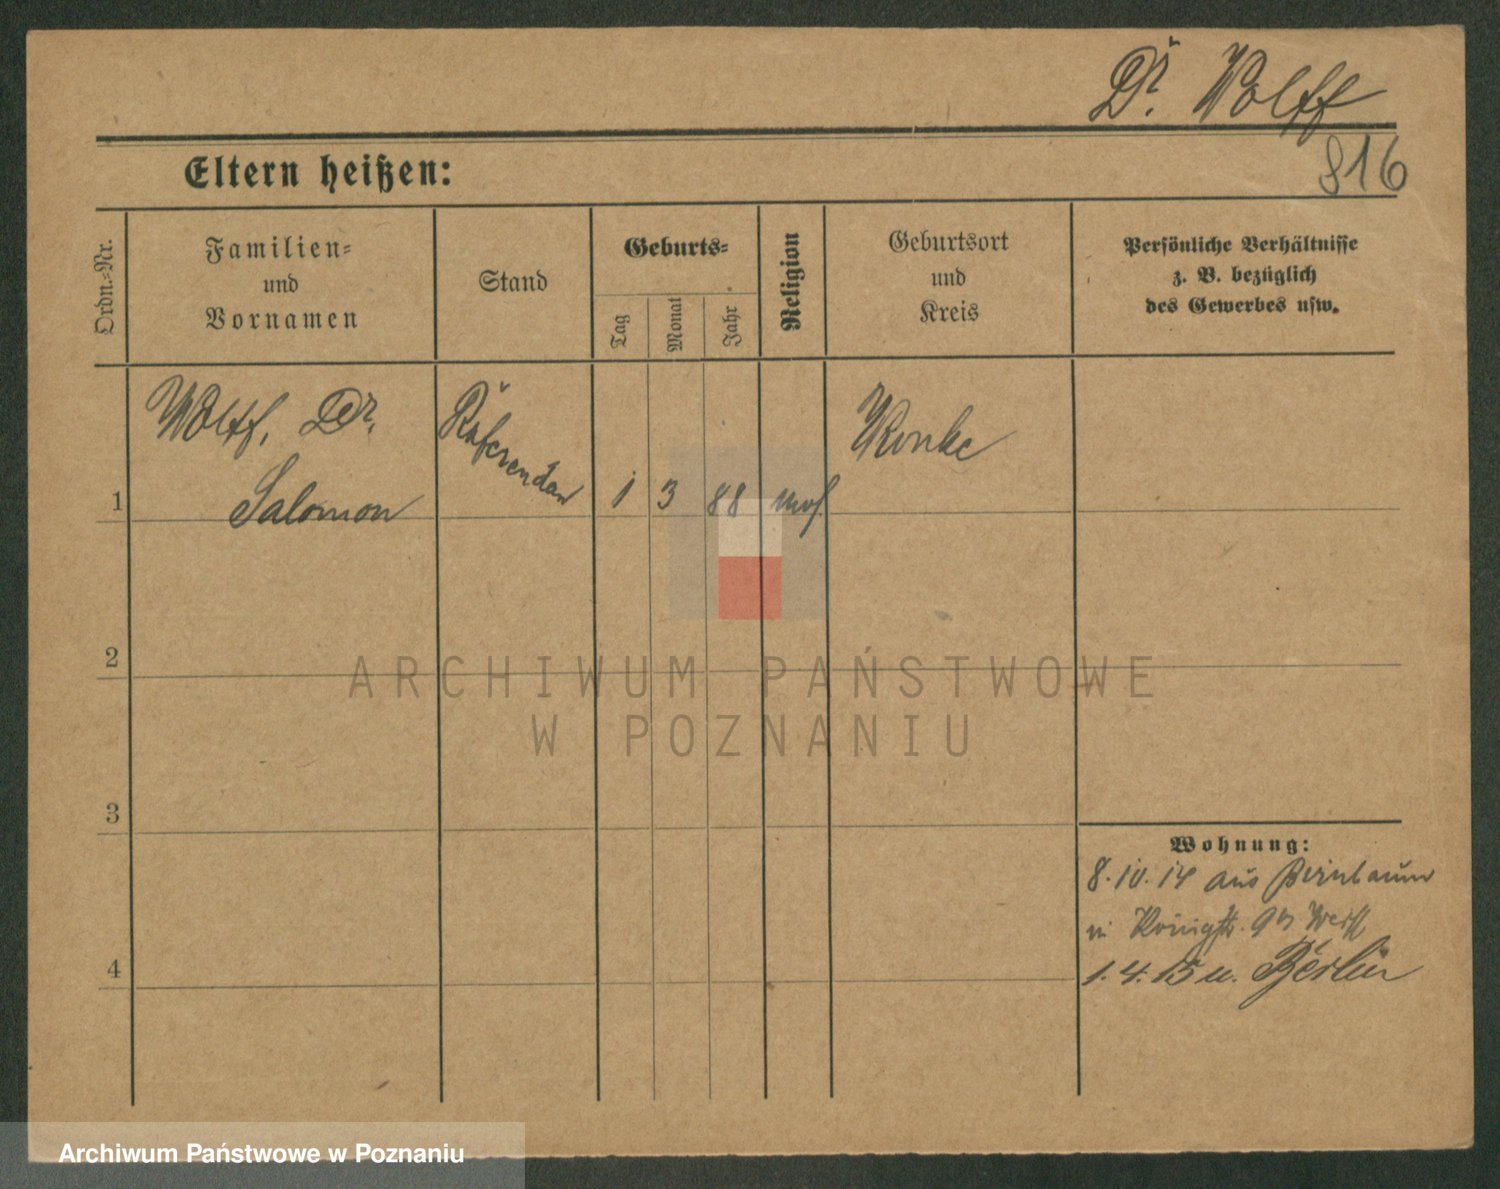 Dr. Wolff
816
Eltern heißen:
Ordn.-Nr.
Familien-
und
Vornamen
Stand
Geburts-
Tag
Monat
Jahr
Religion
Geburtsort
und
Kreis
Persönliche Verhältnisse
z. B. bezüglich
des Gewerbes usw.
1
Wolff, Dr.
Salomon
Referendar
1
3
88
mos.
Wronke
2
3
4
Wohnung:
8.10.14 aus Birnbaum
n. Königstr. 9
1.4.15 n. Berlin
ARCHIWUM PAŃSTWOWE
W POZNANIU
Archiwum Państwowe w Poznaniu